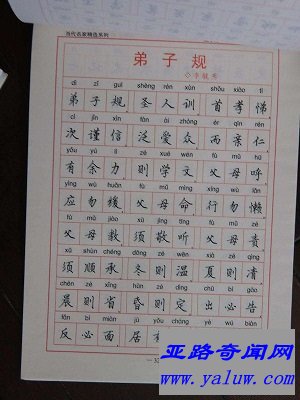 当代名家精选系列
弟子规
dì zǐ guī shèng rén xùn shǒu xiào tì
弟子规 圣人训 首孝悌
cì jǐn xìn fàn ài zhòng ér qīn rén
次谨信 泛爱众 而亲仁
yǒu yú lì zé xué wén fù mǔ hū
有余力 则学文 父母呼
yìng wù huǎn fù mǔ mìng xíng wù lǎn
应勿缓 父母命 行勿懒
fù mǔ jiào xū jìng tīng fù mǔ zé
父母教 须敬听 父母责
xū shùn chéng dōng zé wēn xià zé qìng
须顺承 冬则温 夏则凊
chén zé xǐng hūn zé dìng chū bì gào
晨则省 昏则定 出必告
fǎn bì miàn jū yǒu cháng yè wú biàn
反必面 居
亚路奇闻网
www.yaluw.com